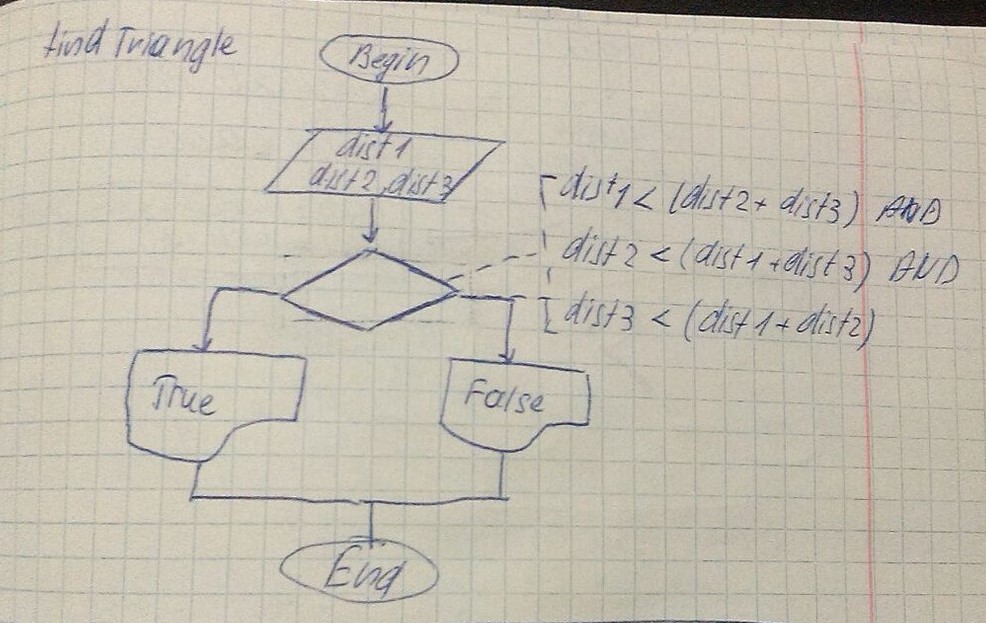 find Triangle
Begin
dist1
dist2, dist3
dist1 < (dist2 + dist3) AND
dist2 < (dist1 + dist3) AND
dist3 < (dist1 + dist2)
True
False
End